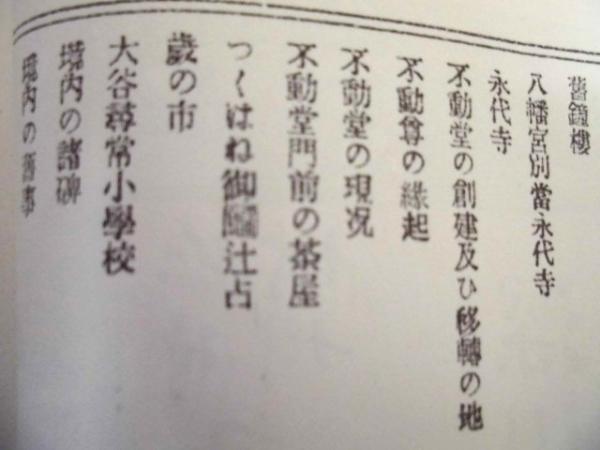 舊鐘樓
八幡宮別當永代寺
永代寺
不動堂の創建及ひ移轉の地
不動尊の緣起
不動堂の現況
不動堂門前の茶屋
つくはね御鬮辻占
歲の市
大谷尋常小學校
境內の諸碑
境內の舊事